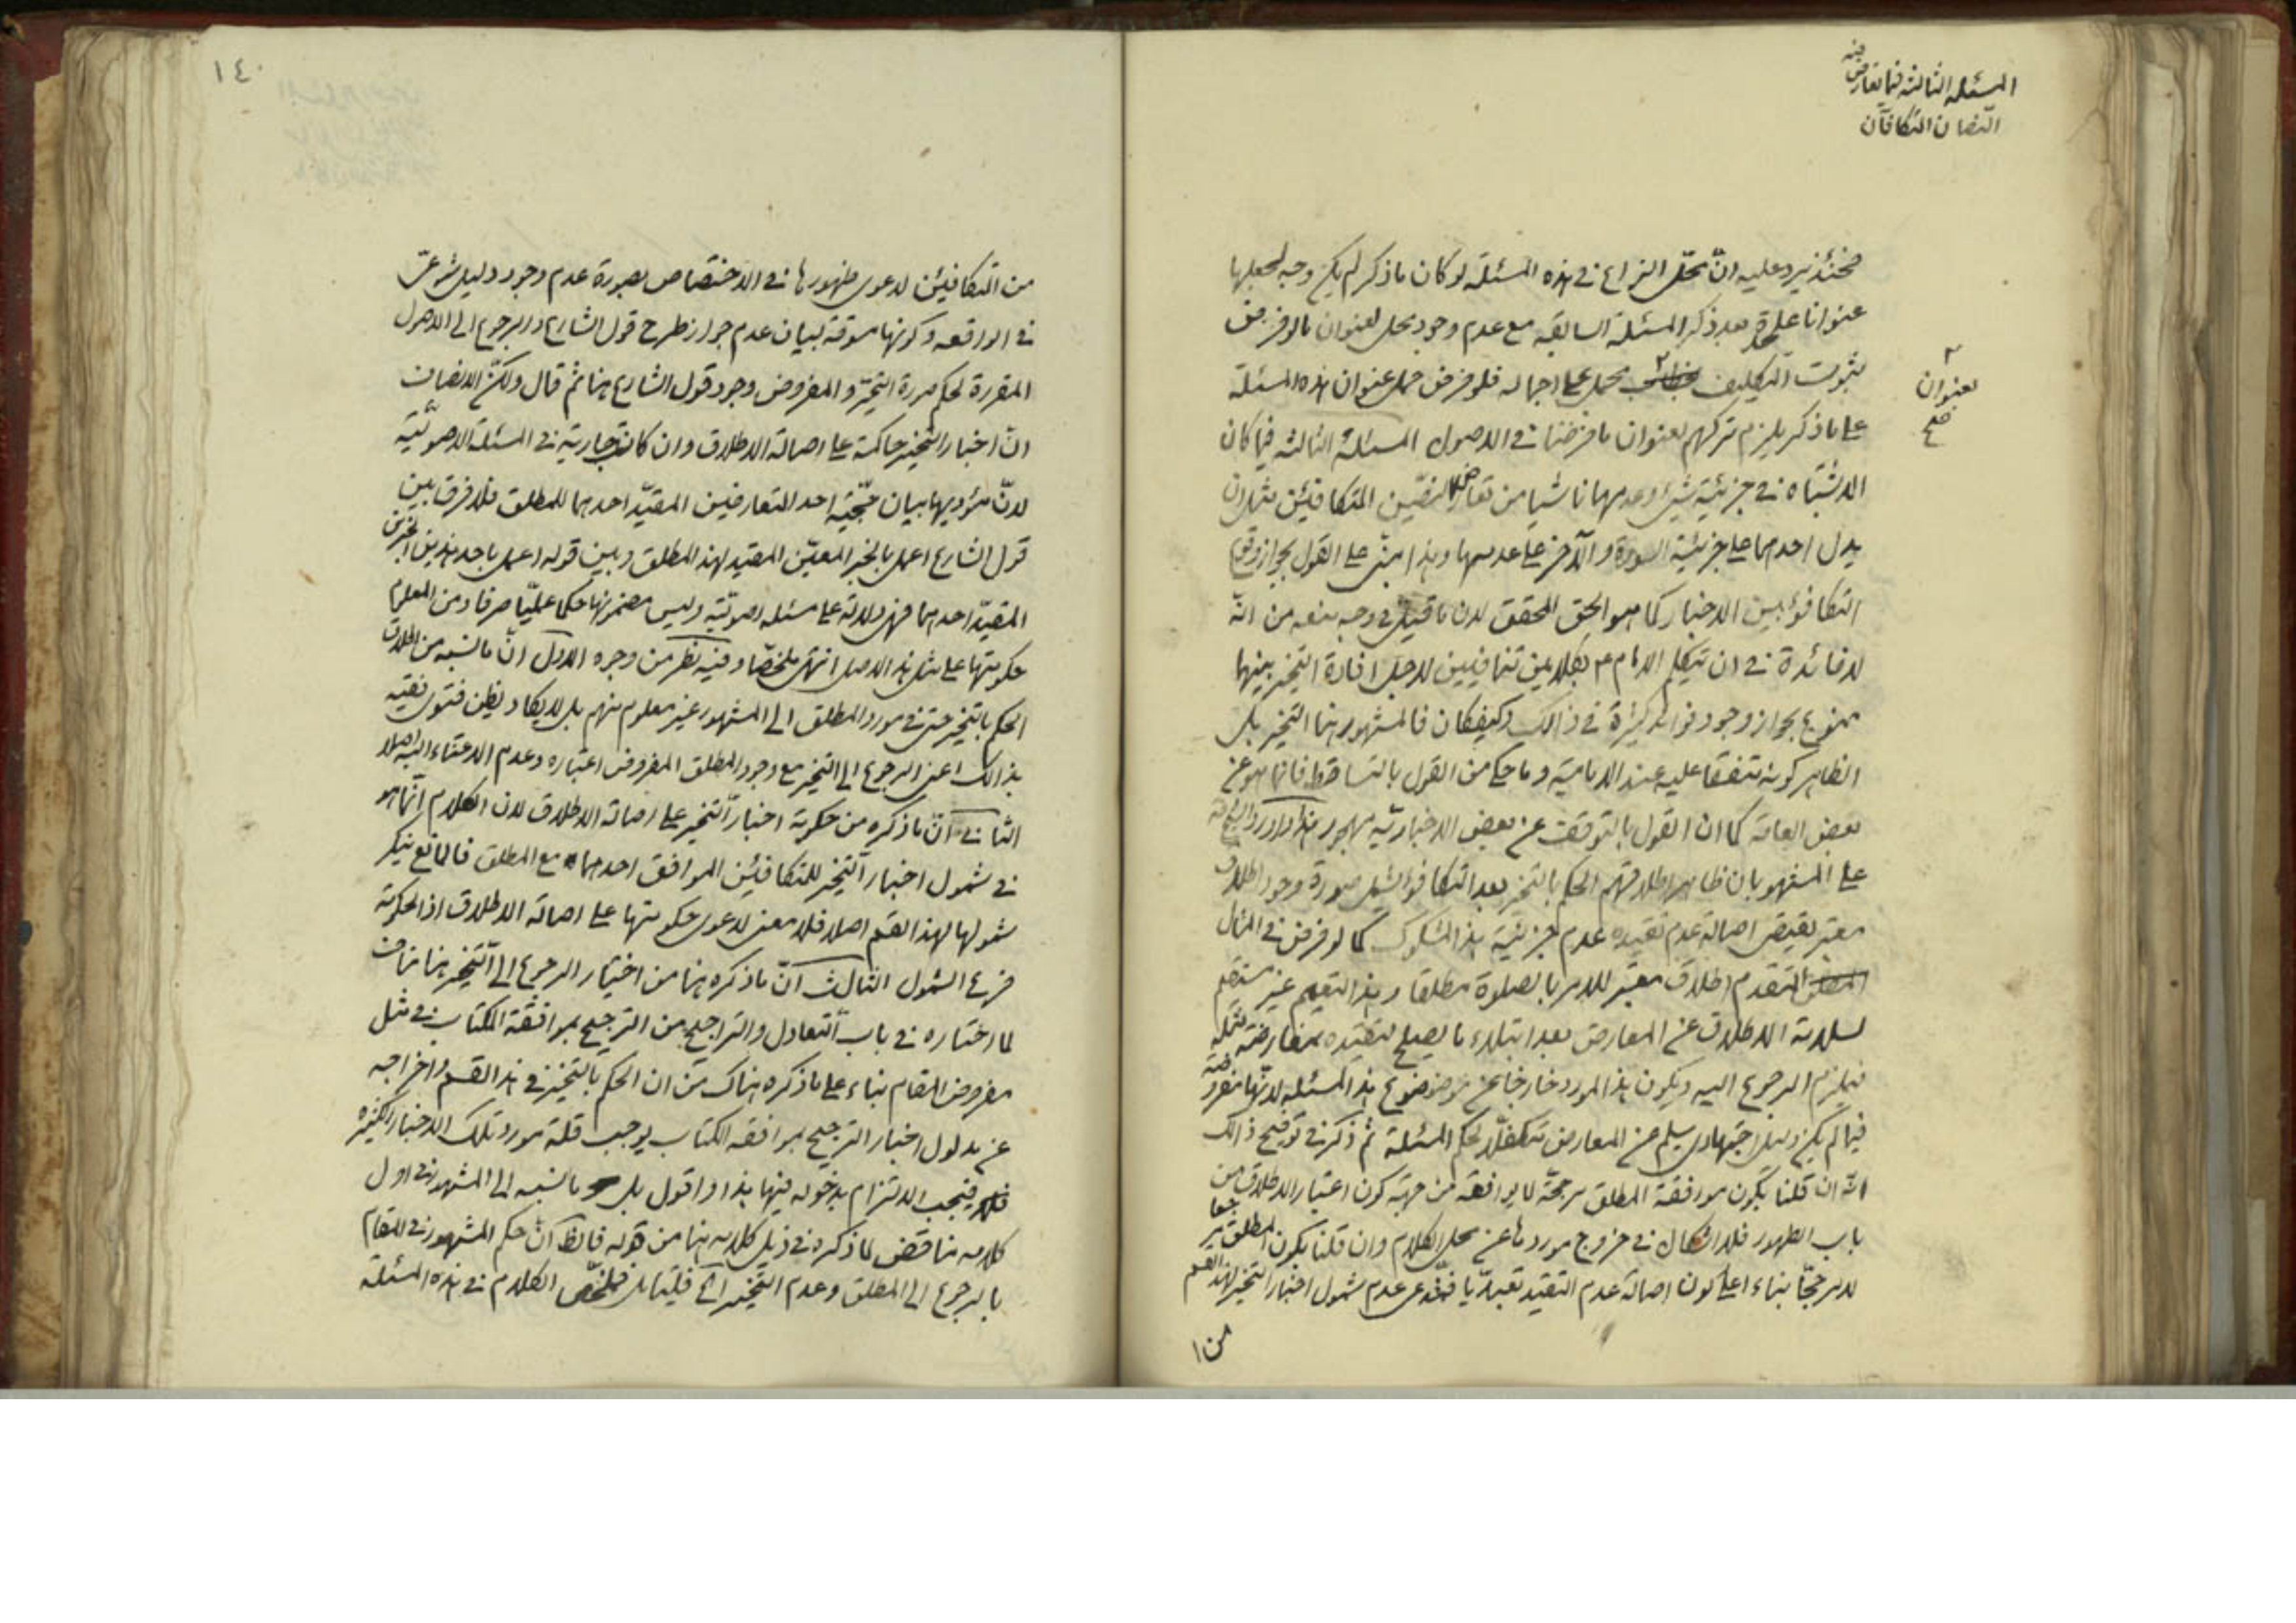 المسئلة الثالثة فيما تعارض فيه
النصان المتكافآن
فحينئذ يرد عليه انّ محلّ النزاع في هذه المسئلة لو كان ما ذكر لم يكن وجه لجعلها
عنوانا علىحدة بعد ذكر المسئلة السابقة مع عدم وجود محل لعنوان ما لو فرض
ثبوت التكليف بمجمل على اجماله فلو فرض حمل عنوان هذه المسئلة
بعنوان
صح
على ما ذكر يلزم تركهم لعنوان ما فرضنا في الاصول المسئلة الثالثة فيما كان
الاشتباه في جزئية شئ وعدمها ناشيا من تعارض النصّين المتكافئين مثل ان
يدل احدهما على جزئية السورة والآخر على عدمها وهذا مبنى على القول بجواز وقوع
التكافؤ بين الاخبار كما هو الحق المحقق لان ما قيل في وجه منعه من انّه
لا فائدة في ان يتكلم الامام ع بكلامين متنافيين لاجل افادة التخيير بينهما
ممنوع بجواز وجود فوائد كثيرة في ذالك وكيفكان فالمشهور هنا التخيير بل
الظاهر كونه متفقا عليه عند الامامية وما حكى من القول بالتساقط فانما هو عن
بعض العامة كما ان القول بالتوقف عن بعض الاخبارية مهجور هذا واورد
على المشهور بان ظاهر اطلاقهم الحكم بالتخيير بعد التكافؤ يشمل صورة وجود اطلاق
معتبر يقتضى اصالة عدم تقيده عدم جزئية هذا المشكوك كما لو فرض في المثال
المتقدم اطلاق معتبر للامر بالصلوة مطلقا وهذا التعميم غير مستقيم
لسلامة الاطلاق عن المعارض بعد ابتلاء ما يصلح لتقييده بمعارضة مثله
فيلزم الرجوع اليه ويكون هذا المورد خارجا عن موضوع هذا المسئلة لانّها مفروضة
فيما لم يكن دليل اجتهادى سليم عن المعارض متكفلا لحكم المسئلة ثم ذكر في توضيح ذالك
انّه ان قلنا بكون موافقة المطلق مرجحة لما يوافقه من جهة كون اعتبار الاطلاق من
باب الظهور فلا اشكال في خروج موردها عن محل الكلام وان قلنا بكون المطلق مرجعا
لا مرجحّا بناء على كون اصالة عدم التقييد تعبديّا فندّعى عدم شمول اخبار التخيير لهذا القسم
من ا
١٤٠
من المتكافئين لدعوى ظهورها في الاختصاص بصورة عدم وجود دليل شرعىّ
في الواقعه وكونها مسوقة لبيان عدم جواز طرح قول الشارع والرجوع الى الاصول
المقررة لحكم صورة التحيّر والمفروض وجود قول الشارع هنا ثم قال ولكنّ الانصاف
ان اخبار التخيير حاكمة على اصالة الاطلاق وان كانت جارية في المسئلة الاصوليّة
لانّ مؤديها بيان حجّية احد المتعارضين المقيّد احدهما للمطلق فلا فرق بين
قول الشارع اعمل بالخبر المعيّن المقيد لهذا المطلق وبين قوله اعمل باحد هذين الخبرين
المقيّد احدهما فهى دلالة على مسئله اصوليّة وليس مضمونها حكما عمليّا صرفا ومن المعلوم
حكومتها على مثل هذا الاصل انتهى ملخصّا وفيه نظر من وجوه الاول انّ ما نسبه من اطلاق
الحكم بالتخيير حتى في مورد المطلق الى المشهور غير معلوم منهم بل لا يكاد يظن فتوى فقيه
بذالك اعنى الرجوع الى التخيير مع وجود المطلق المفروض اعتباره وعدم الاعتناء اليه اصلا
الثاني انّ ما ذكره من حكومة اخبار التخيير على اصالة الاطلاق لان الكلام انّما هو
في شمول اخبار التخيير للمتكافئين الموافق احدهما مع المطلق فالمانع ينكر
شمولها لهذا القسم اصلا فلا معنى لدعوى حكومتها على اصالة الاطلاق اذ الحكومة
فرع الشمول الثالث انّ ما ذكره هنا من اختيار الرجوع الى التخيير هنا مناف
لما اختاره في باب التعادل والتراجيح من الترجيح بموافقة الكتاب في مثل
مفروض المقام بناء على ما ذكره هناك من ان الحكم بالتخيير في هذا القسم واخراجه
عن مدلول اخبار الترجيح بموافقة الكتاب يوجب قلة مورد تلك الاخبار الكثيرة
فيجب الالتزام بدخوله فيها هذا واقول بل ما نسبه الى المشهور في اول
كلامه مناقض لما ذكره في ذيل كلامه هنا من قوله فالظ انّ حكم المشهور في المقام
بالرجوع الى المطلق وعدم التخيير الخ فليتامل فملخّص الكلام في هذه المسئلة